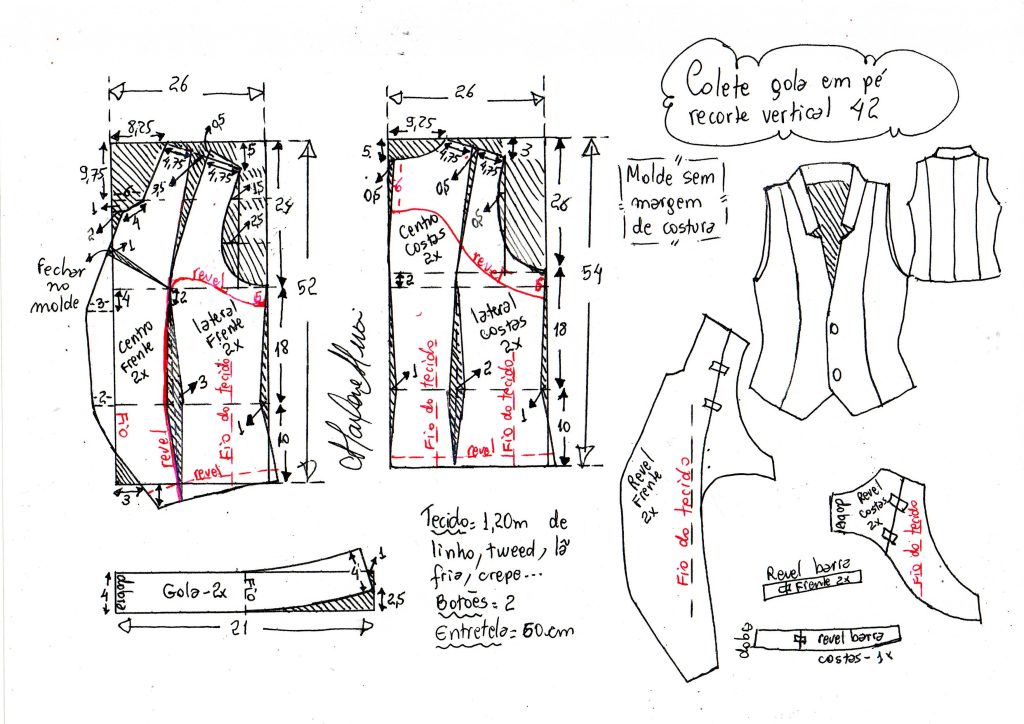 Colete gola em pé
recorte vertical 42
Molde sem
margem
de costura
26
8,25
0,5
5
9,75
4,75
4,75
3,5
6
1
2
4
1
15
25
24
52
Fechar
no
molde
3
4
2
revel
5
centro
Frente
2x
lateral
Frente
2x
18
3
2
Fio
revel
Fio do tecido
1
10
revel
3
26
9,25
5
4,75
4,75
3
0,5
0,5
0,5
Centro
Costas
2x
revel
26
54
2
5
lateral
costas
2x
18
1
2
1
Fio do tecido
Fio do tecido
10
revel
4
dobra
Gola-2x
Fio
4
1
2,5
21
Tecido= 1,20m de
linho, tweed, lã
fria, crepe...
Botões= 2
Entretela= 50cm
Revel
Frente
2x
Fio do tecido
dobra
Revel
costas
2x
Fio do tecido
Revel barra
Frente 2x
dobra
revel barra
costas-1x